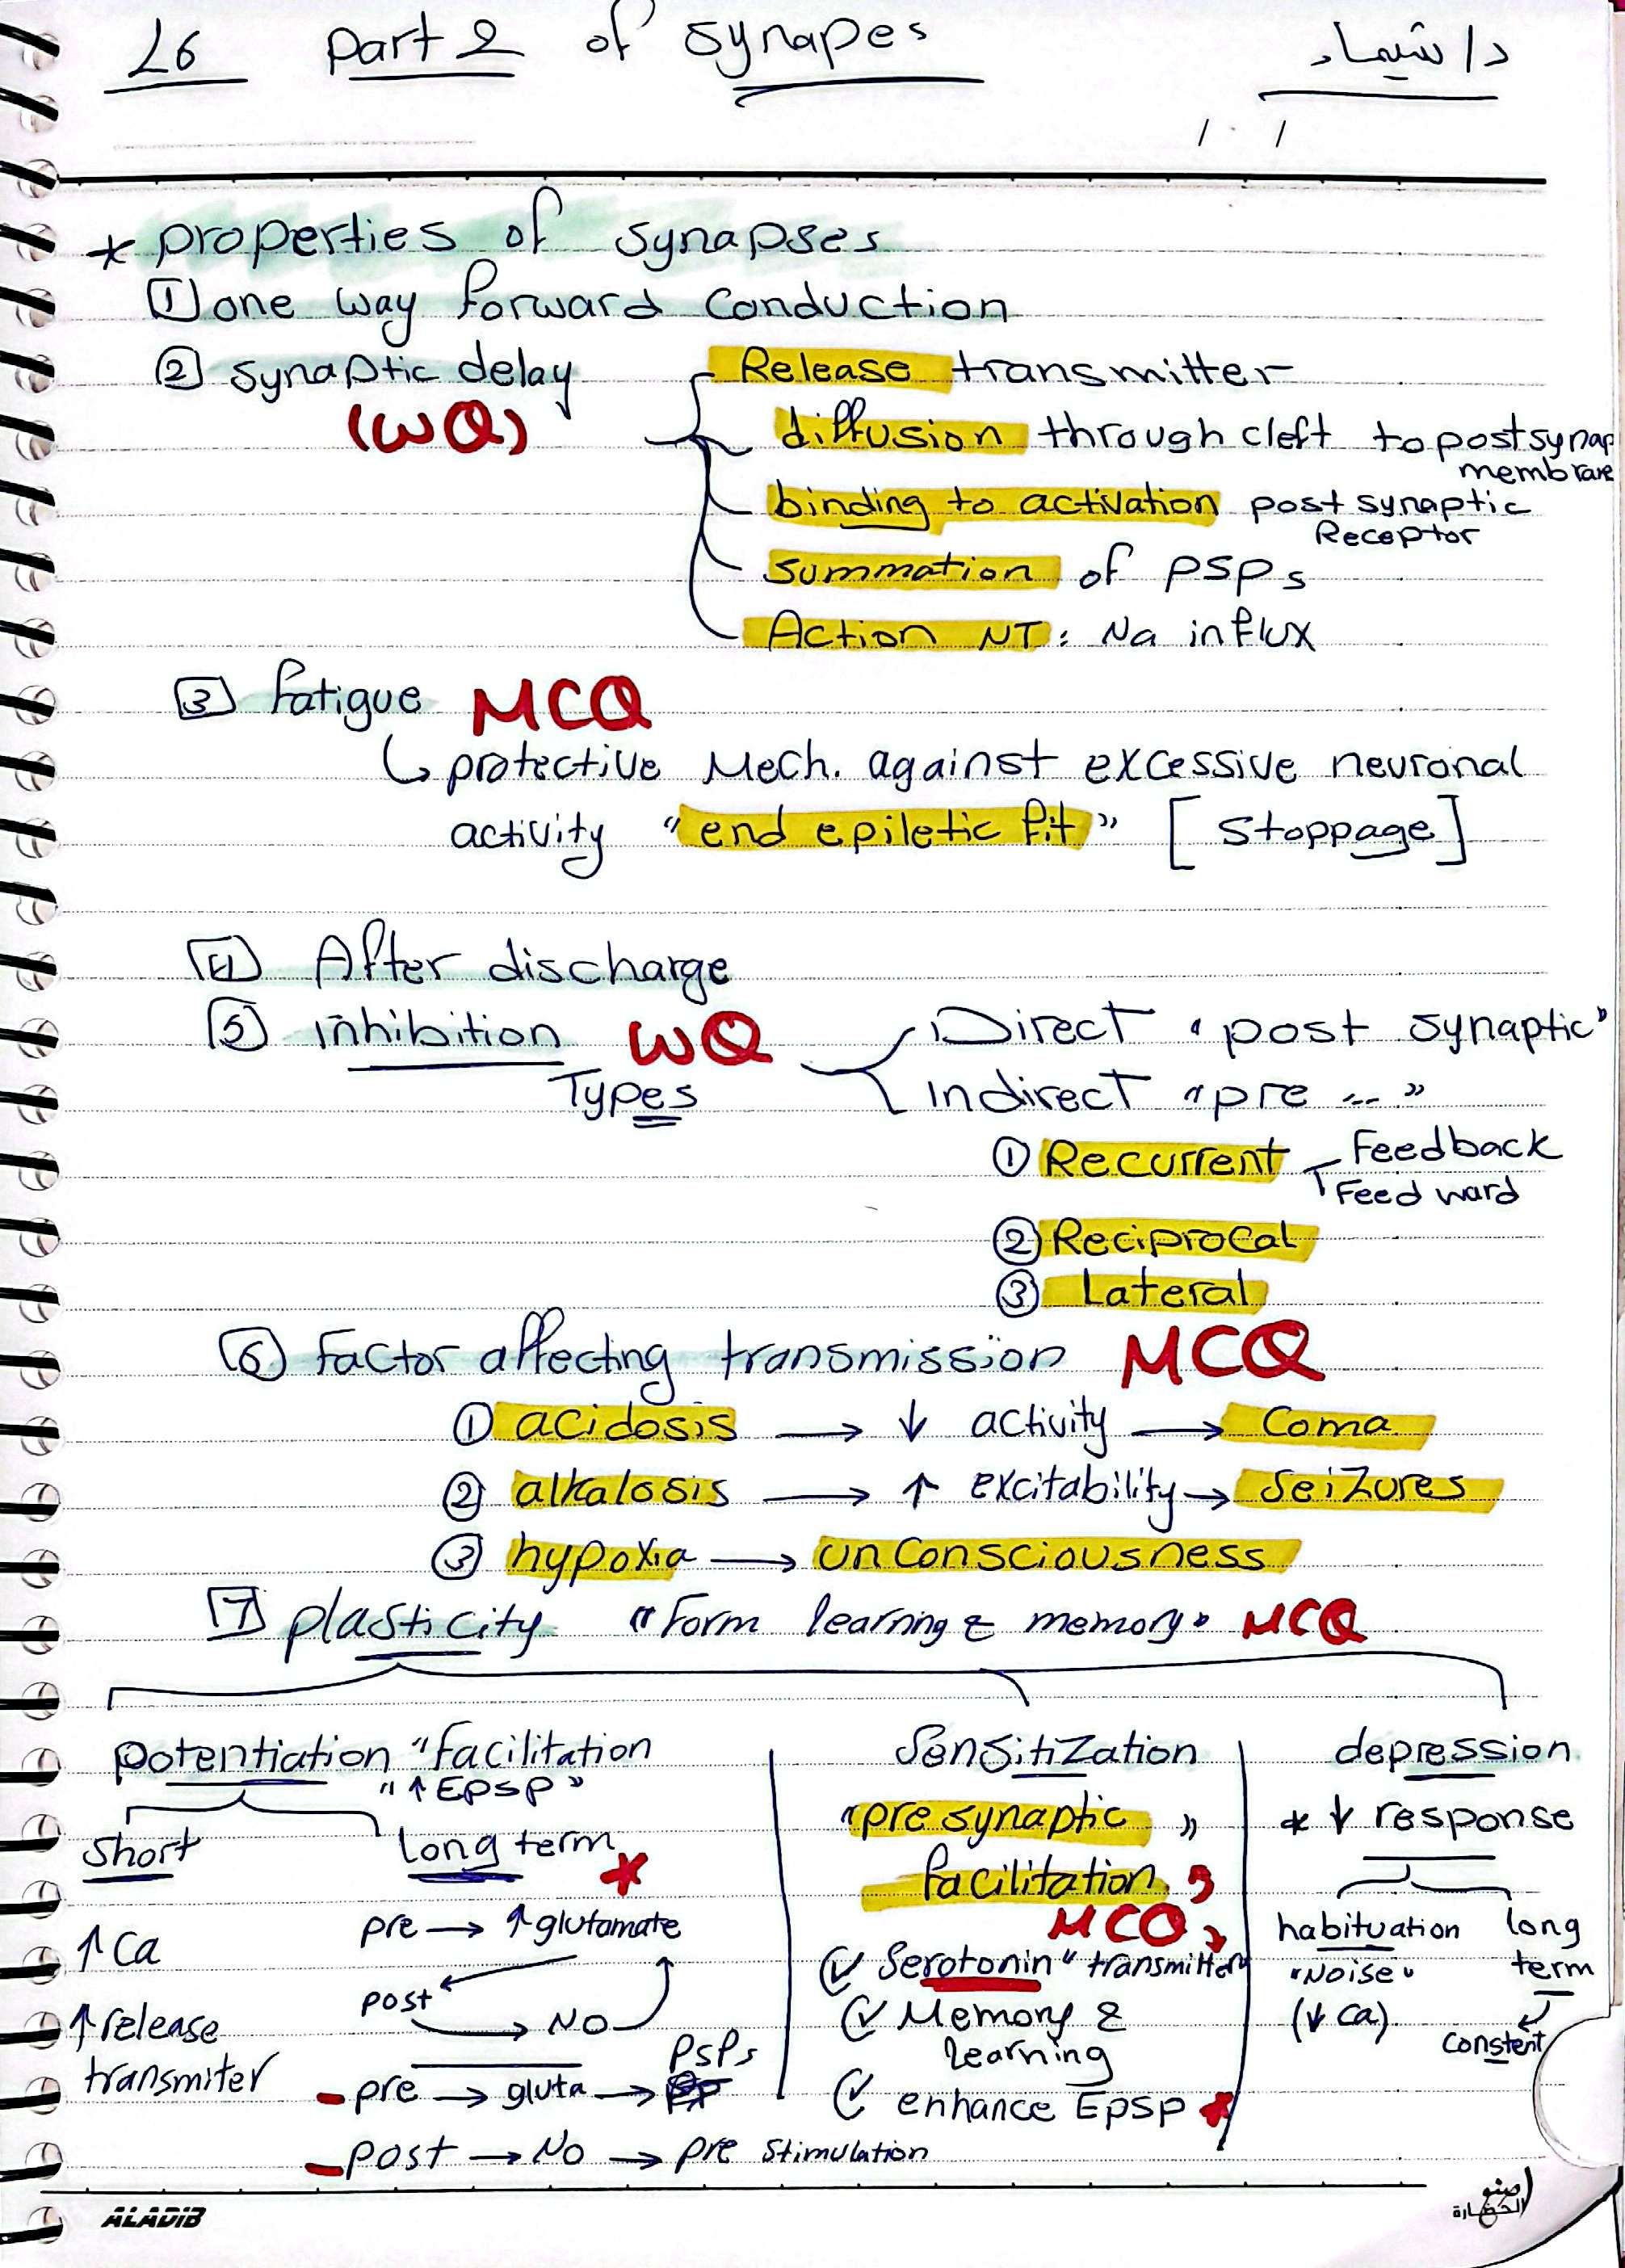 L6 part 2 of synapes د/ شيماء
/ /
* properties of synapses
1 one way forward conduction
2 synaptic delay
(WQ)
Release transmitter
diffusion through cleft to postsynap
membrane
binding to activation post synaptic
Receptor
Summation of PSPs
Action NT: Na influx
3 fatigue MCQ
↳ protective Mech. against excessive neuronal
activity "end epiletic fit" [stoppage]
4 After discharge
5 inhibition WQ
Types
Direct "post synaptic"
indirect "pre --- "
① Recurrent
Feedback
Feed ward
② Reciprocal
③ Lateral
6 Factor affecting transmission MCQ
① acidosis → ↓ activity → Coma
② alkalosis → ↑ excitability → Seizures
③ hypoxia → unconsciousness
7 plasticity "Form learning & memory" MCQ
potentiation "facilitation
"↑ EPSP"
short
↑ Ca
↑ release
transmiter
long term *
pre → ↑ glutamate
post → NO
pre → gluta → PSPs
post → NO → pre stimulation
Sensitization
"pre synaptic "
facilitation
MCQ
Serotonin " transmitter
Memory &
learning
enhance Epsp *
depression
* ↓ response
habituation
"Noise"
(↓ ca)
long
term
constent
ALADIB
اصنع
الحضارة